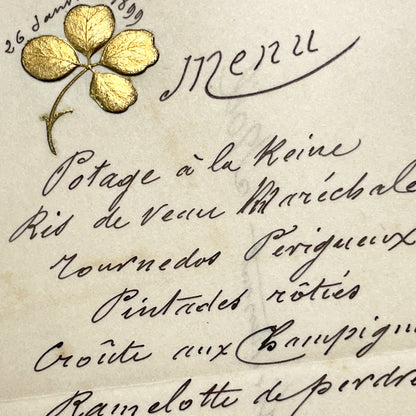 26 Janv 1899
Menu
Potage à la Reine
Ris de veau Maréchale
Tournedos Périgueux
Pintades rôties
Croûte aux Champign
Ramelotte de perdre